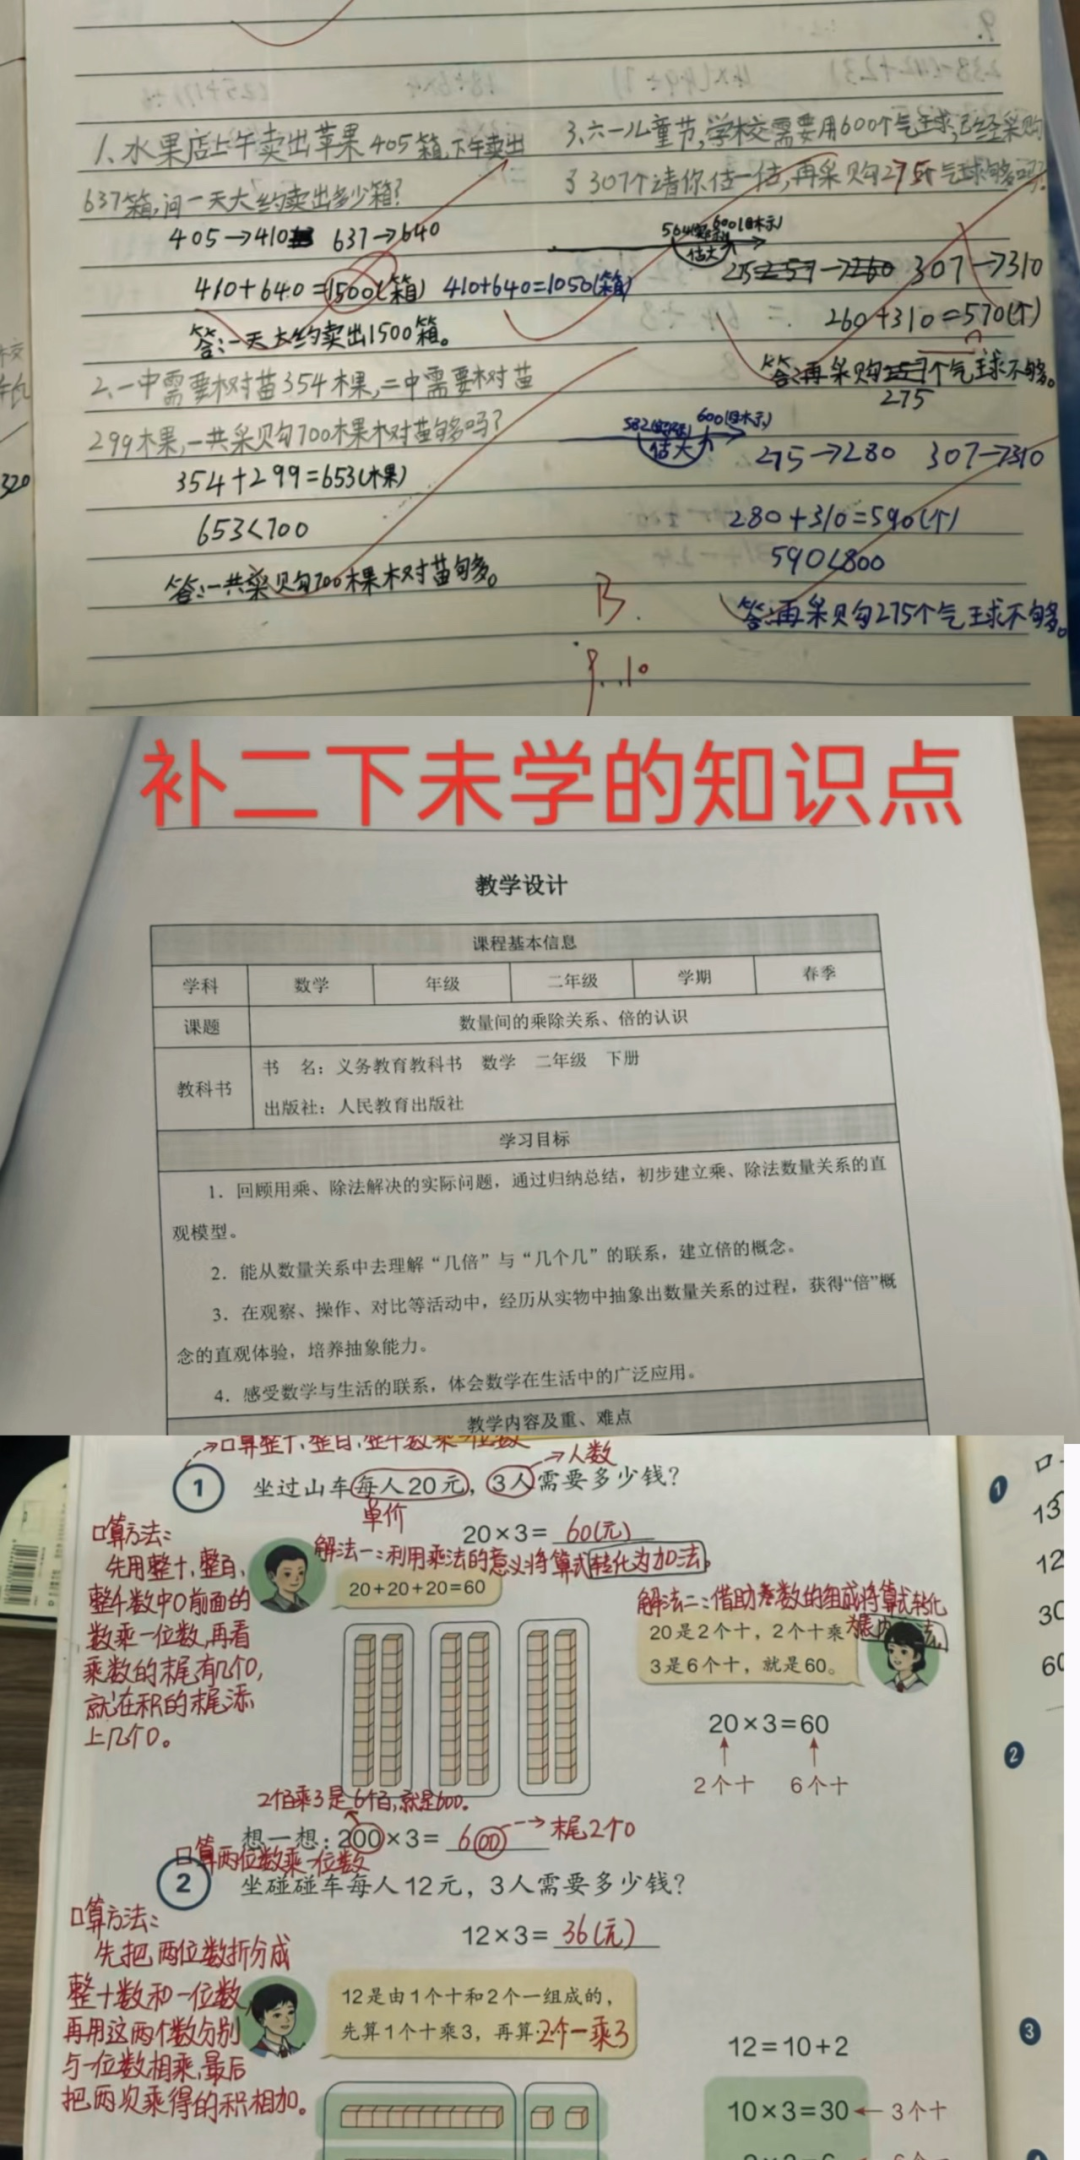 1、水果店上午卖出苹果405箱,下午卖出
637箱,问一天大约卖出多少箱?
405→410 637→640
410+640=1500(箱) 410+640=1050(箱)
答:一天大约卖出1500箱。
2、一中需要树苗354棵,二中需要树苗
299棵,一共采购700棵树苗够吗?
354+299=653(棵)
653<700
答:一共采购700棵树苗够。
3、六一儿童节,学校需要用600个气球,已经采购
了307个请你估一估,再采购275个气球够吗?
600(目标)
估大
257→260 307→310
260+310=570(个)
答:再采购257个气球不够。
275
600(目标)
估大
275→280 307→310
280+310=590(个)
590<800
答:再采购275个气球不够。
B.
9..10
320
补二下未学的知识点
教学设计
课程基本信息
学科 数学 年级 二年级 学期 春季
课题 数量间的乘除关系、倍的认识
教科书
书 名:义务教育教科书 数学 二年级 下册
出版社:人民教育出版社
学习目标
1.回顾用乘、除法解决的实际问题,通过归纳总结,初步建立乘、除法数量关系的直
观模型。
2.能从数量关系中去理解“几倍”与“几个几”的联系,建立倍的概念。
3.在观察、操作、对比等活动中,经历从实物中抽象出数量关系的过程,获得“倍”概
念的直观体验,培养抽象能力。
4.感受数学与生活的联系,体会数学在生活中的广泛应用。
教学内容及重、难点
口算整十、整百、整千数乘一位数
人数
1 坐过山车每人20元,3人需要多少钱?
单价
20×3=60(元)
口算方法:
先用整十、整百、
整千数中0前面的
数乘一位数,再看
乘数的末尾有几个0,
就在积的末尾添
上几个0。
解法一:利用乘法的意义将算式转化为加法。
20+20+20=60
解法二:借助数的组成将算式转化
为表内
20是2个十,2个十乘
3是6个十,就是60。
20×3=60
2个十 6个十
2个百乘3是6个百,就是600。
想一想:200×3=600 末尾2个0
口算两位数乘一位数
2 坐碰碰车每人12元,3人需要多少钱?
12×3=36(元)
口算方法:
先把两位数拆分成
整十数和一位数,
再用这两个数分别
与一位数相乘,最后
把两次乘得的积相加。
12是由1个十和2个一组成的,
先算1个十乘3,再算2个一乘3
12=10+2
10×3=30 ← 3个十
1
13
12
30
60
2
3